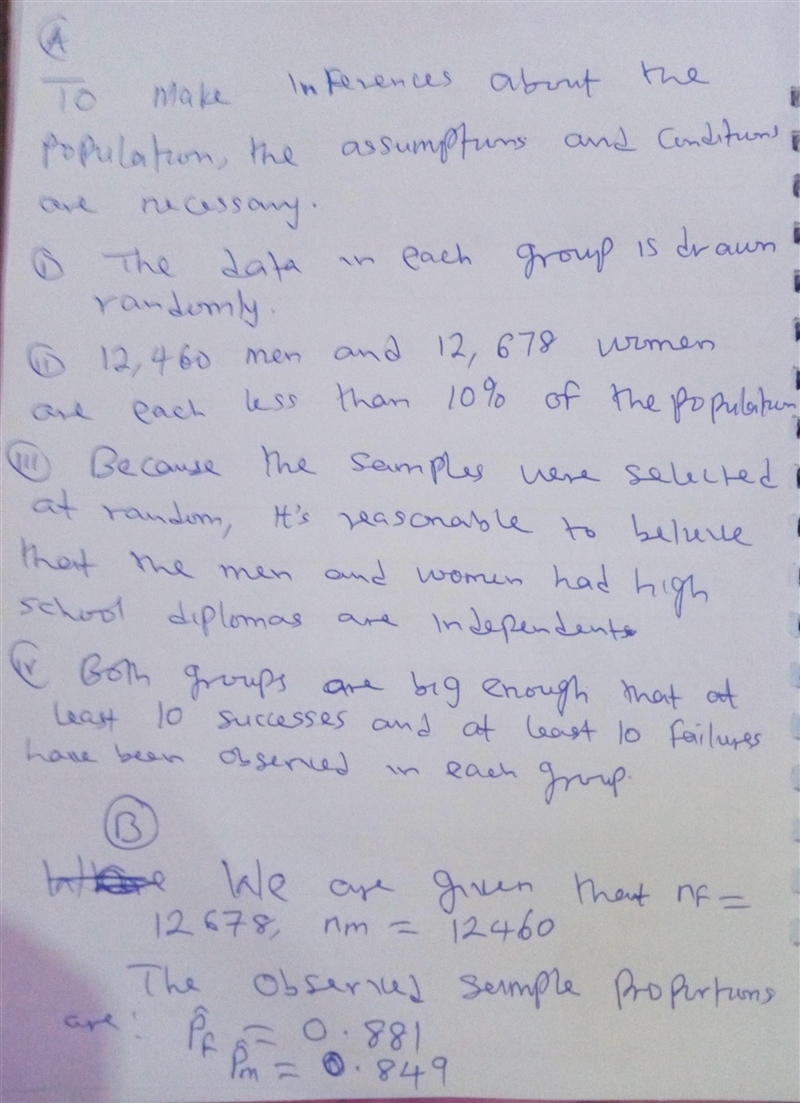 A
To make Inferences about the
population, the assumptions and Conditions
are necessary.
(i) The data in each group is drawn
randomly.
(ii) 12,460 men and 12,678 women
are each less than 10% of the population
(iii) Because the samples were selected
at random, It's reasonable to believe
that the men and women had high
school diplomas are Independents
(iv) Both groups are big enough that at
least 10 successes and at least 10 failures
have been observed in each group.
B
We are given that nf =
12678, nm = 12460
The observed sample proportions
are: p̂f = 0.881
p̂m = 0.849